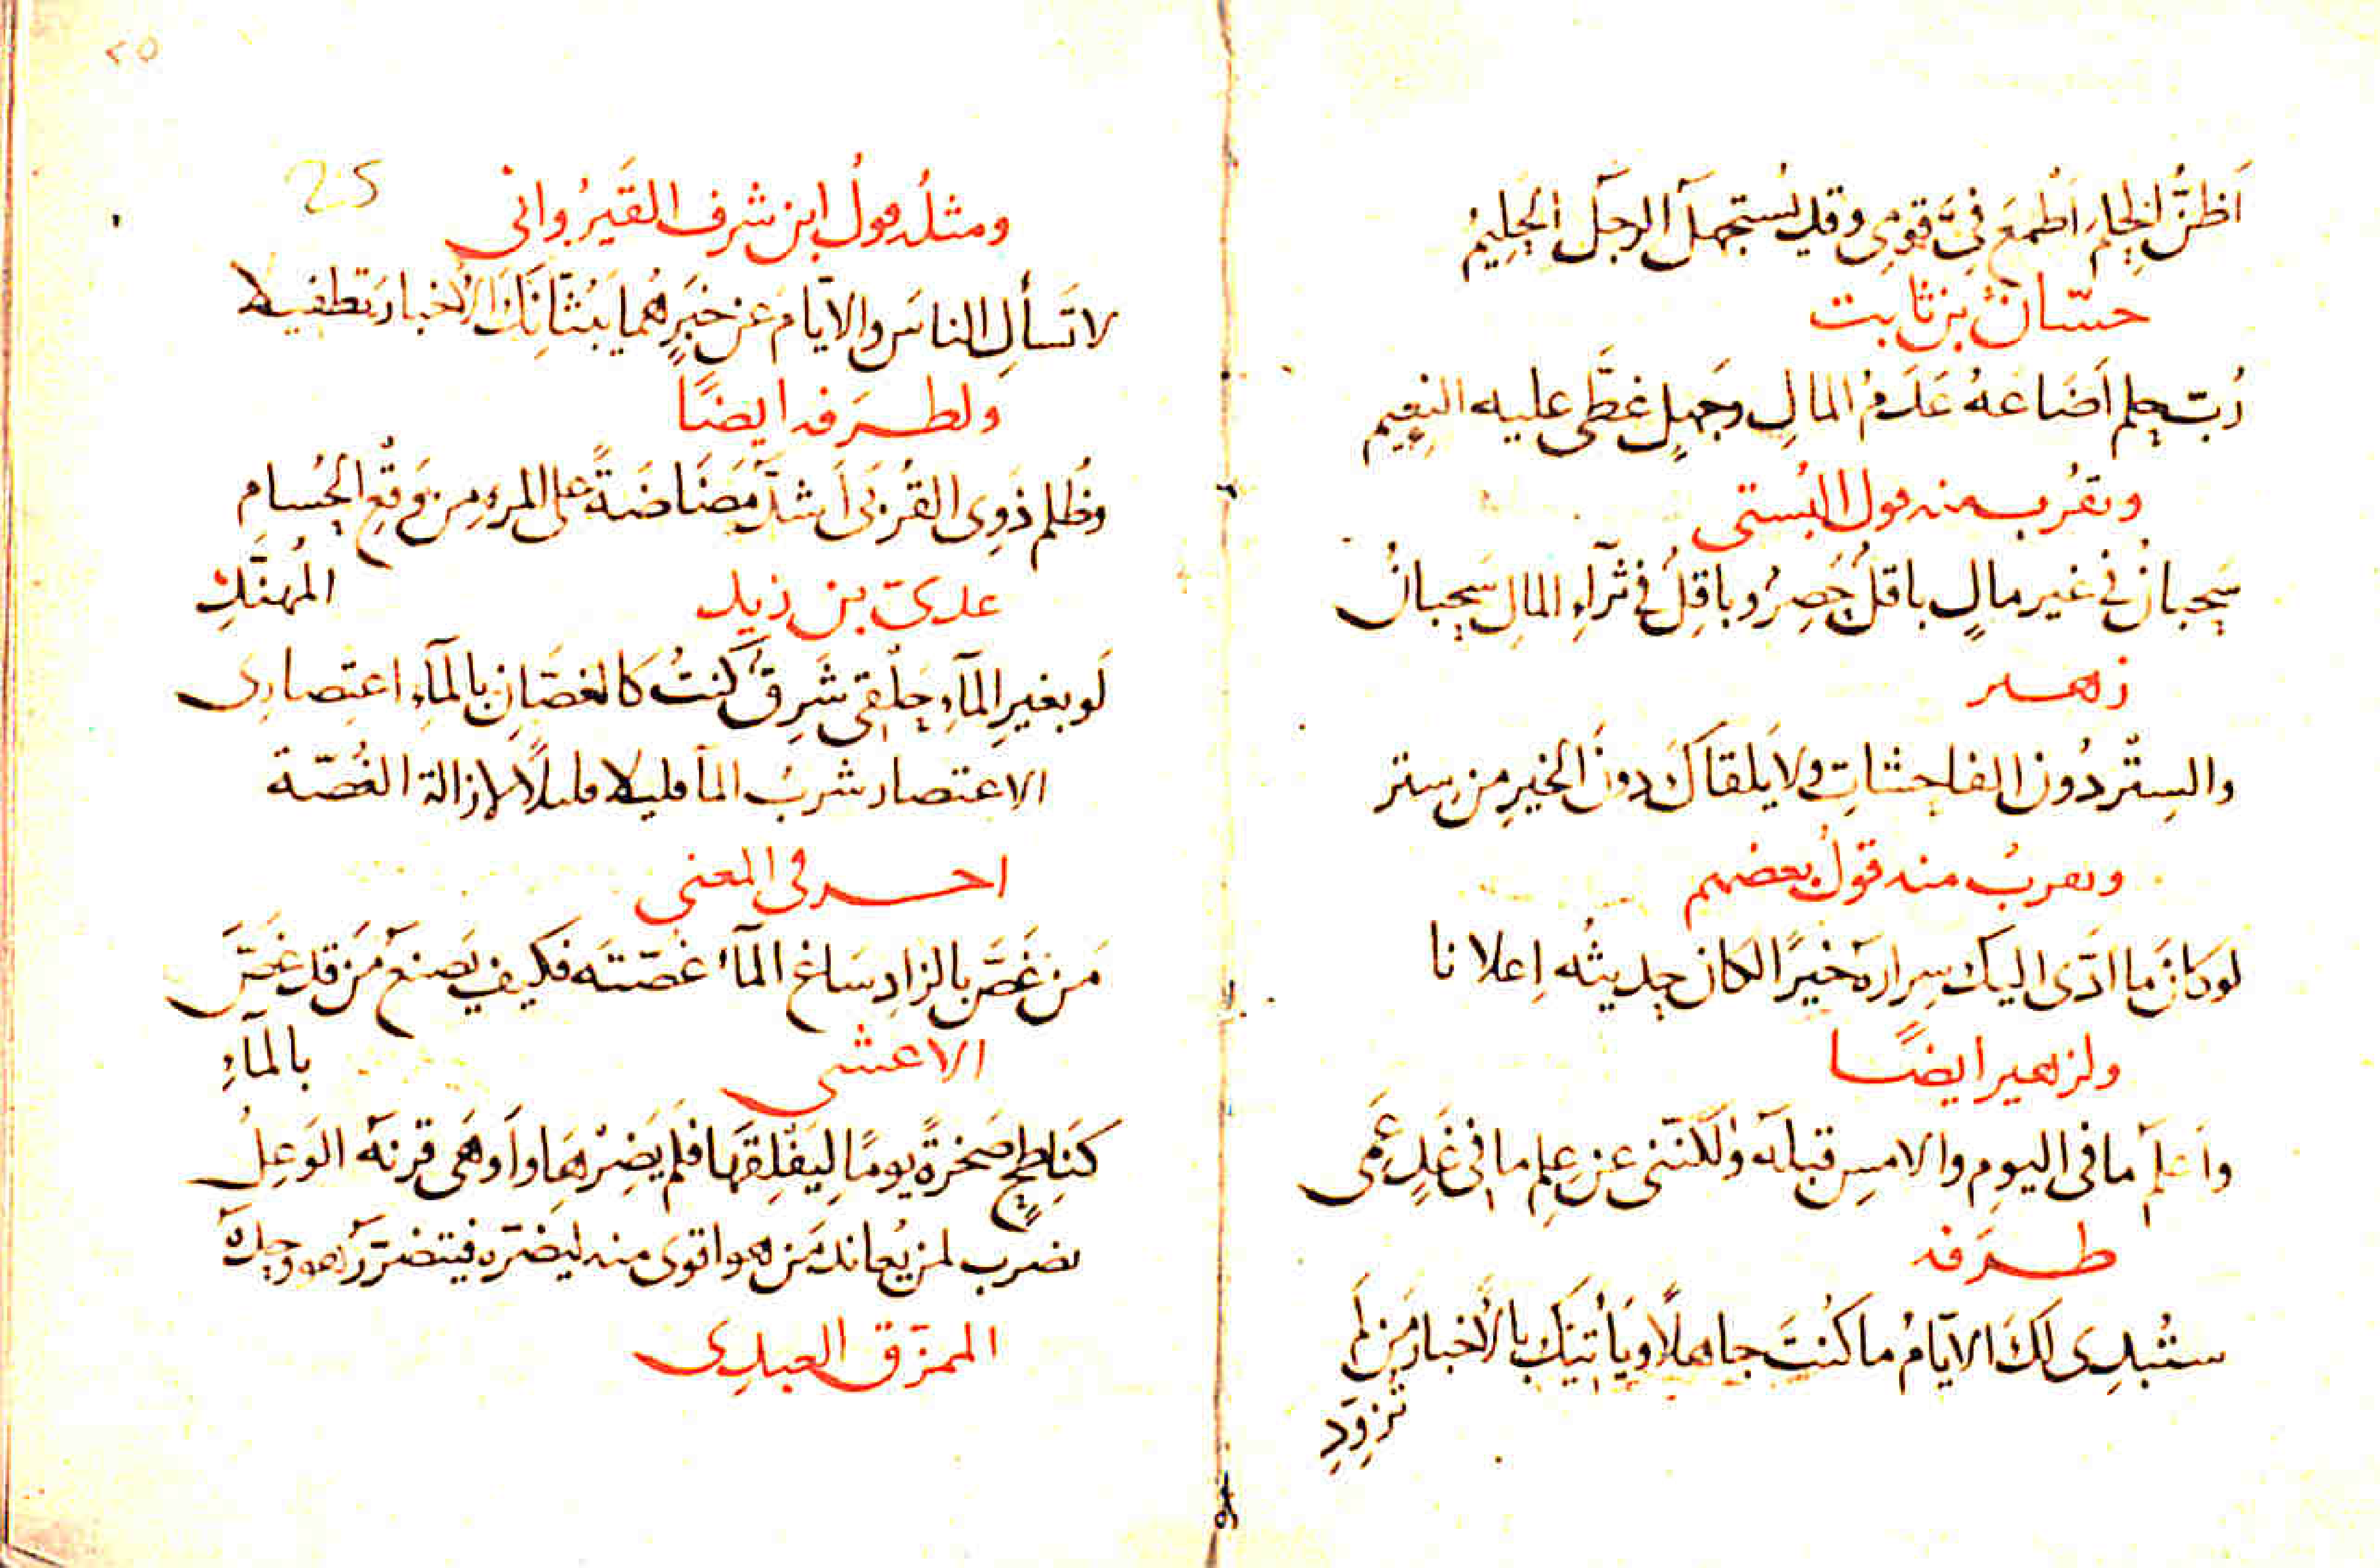 اَظنُّ الحِلمَ اَطمعَ فِيَّ قومِى وقد يُستجهلُ الرجلُ الحَلِيمُ
حسّانُ بن ثابت
رُبّ حِلمٍ اَضَاعَهُ عَدَمُ المالِ وجَهلٍ غطَّى عليه النعِيم
ويقرُب منه قول البُستى
سَحبانُ فى غير مالٍ باقلٌ حَصِرٌ وباقِلٌ فى ثرآءِ المالِ سَحبانُ
زهير
والسِتْر دُون الفاحشاتِ ولا يَلقاكَ دونَ الخيرِ من سِتر
ويقربُ منه قولُ بعضهم
لو كانَ ما ادّى اليك سِرارهُ خيرًا لكان حديثُه اِعلانا
ولزهير ايضًا
واَعلَمُ ما فى اليومِ والامسِ قبلَهُ ولكنّنى عن عِلمِ ما فى غَدٍ عَمِى
طرَفه
ستُبدِى لَكَ الايّامُ ما كُنتَ جاهلًا ويَأتيكَ بالاَخبار مَن لَم
تُزوِّدِ
٢٥
25
ومثلُه قولُ ابن شرف القَيرُوانى
لا تَسألِ الناسَ والايّامَ عن خبَرٍ هُما يَبُثّانِكَ الاَخبارَ تطفيلا
ولطرَفه ايضًا
وظُلم ذَوِى القُربَى اَشدُّ مَضَاضَةً على المرءِ مِن وَقعِ الحُسام
المُهنَّدِ
عدىّ بن زيد
لَو بغيرِ المآءِ حَلْقِى شَرِقٌ كنتُ كالغصّانِ بالمآءِ اعتِصارِى
الاعتصار شربُ المآ قليلا قليلًا لإزالة الغُصّة
اخر فى المعنى
مَن غَصَّ بالزادِ سَاغ المآءُ غصّتَه فكيف يَصنعُ مَن قد غَصَّ
بالمآءِ
الاعشى
كنَاطِحٍ صَخرةً يومًا لِيَفلِقَها فلَم يَضِرْها واَوهَى قرنَهُ الوَعِلُ
يضرب لمن يُعاند مَن هو اقوى منه ليضرّه فيتضرّرُ هو وحدَهُ
الممزّق العبدِى